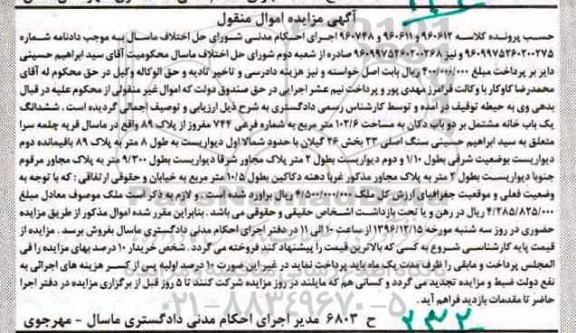 آگهی مزایده اموال منقول
حسب پرونده کلاسه ۹۶۰۶۱۲ و ۹۶۰۶۱۱ و ۹۶۰۷۴۸ اجرای احکام مدنی شورای حل اختلاف ماسال به موجب دادنامه شماره
۹۶۰۹۹۷۵۳۶۰۲۰۰۲۷۵ و نیز ۹۶۰۹۹۷۵۳۶۰۲۰۰۲۶۸ صادره از شعبه دوم شورای حل اختلاف ماسال محکومیت آقای سید ابراهیم حسینی
دایر بر پرداخت مبلغ ۴۰۰/۰۰۰/۰۰۰ ریال بابت اصل خواسته و نیز هزینه دادرسی و تاخیر تادیه و حق الوکاله وکیل در حق محکوم له آقای
محمدرضا کاوکار با وکالت فرامرز مهدی پور و پرداخت نیم عشر اجرایی در حق صندوق دولت که اموال غیر منقولی از محکوم علیه در قبال
بدهی وی به حیطه توقیف در آمده و توسط کارشناس رسمی دادگستری به شرح ذیل ارزیابی و توصیف اجمالی گردیده است. ششدانگ
یک باب خانه مشتمل بر دو باب دکان به مساحت ۱۰۲/۶ متر مربع به شماره فرعی ۷۴۴ مفروز از پلاک ۸۹ واقع در ماسال قریه چلمه سرا
متعلق به سید ابراهیم حسینی سنگ اصلی ۲۳ بخش ۲۶ گیلان با حدود شمالا اول دیواریست به طول ۸ متر به پلاک ۸۹ باقیمانده دوم
دیواریست بوضعیت شرقی بطول ۱/۱۰ و دوم دیواریست بطول ۲ متر پلاک مجاور شرقا دیواریست بطول ۹/۳۰۰ متر به پلاک مجاور مرقوم
جنوبا دیواریست بطول ۲ متر به پلاک مجاور مذکور غربا دهنه دکاکین بطول ۱۰/۵ متر مربع به خیابان و حقوقی ارتفاقی : که با توجه به
وضعیت فعلی و موقعیت جغرافیای ارزش کل ملک ۴/۵۰۰/۰۰۰/۰۰۰ ریال برآورد شده است. و لازم به ذکر است ملک موصوف معادل مبلغ
۴/۲۸۵/۸۲۵/۰۰۰ ریال در رهن و یا تحت بازداشت اشخاص حقیقی و حقوقی می باشد. بنابراین مقرر شده اموال مذکور از طریق مزایده
حضوری در روز سه شنبه مورخه ۱۳۹۶/۱۲/۱۵ از ساعت ۱۰ الی ۱۱ در دفتر اجرای احکام مدنی دادگستری ماسال بفروش برسد. مزایده از
قیمت پایه کارشناسی شروع به کسی که بالاترین قیمت را پیشنهاد کند فروخته می گردد. شخص خریدار ۱۰ درصد بهای مزایده را فی
المجلس پرداخت و مابقی را ظرف مدت یک ماه باید پرداخت نماید در غیر این صورت ۱۰ درصد اولیه پس از کسر هزینه های اجرائی به
نفع دولت ضبط و مزایده تجدید می گردد و کسانی هم که مایلند در روز مزایده شرکت کنند تا ۵ روز قبل از برگزاری مزایده در دفتر اجرا
حاضر تا مقدمات بازدید فراهم آید.
ح ۶۸۰۳ مدیر اجرای احکام مدنی دادگستری ماسال - مهرجوی
۲۳۲
ParsNamadData
۰۲۱-۸۸۳۴۹۶۷۰-۵